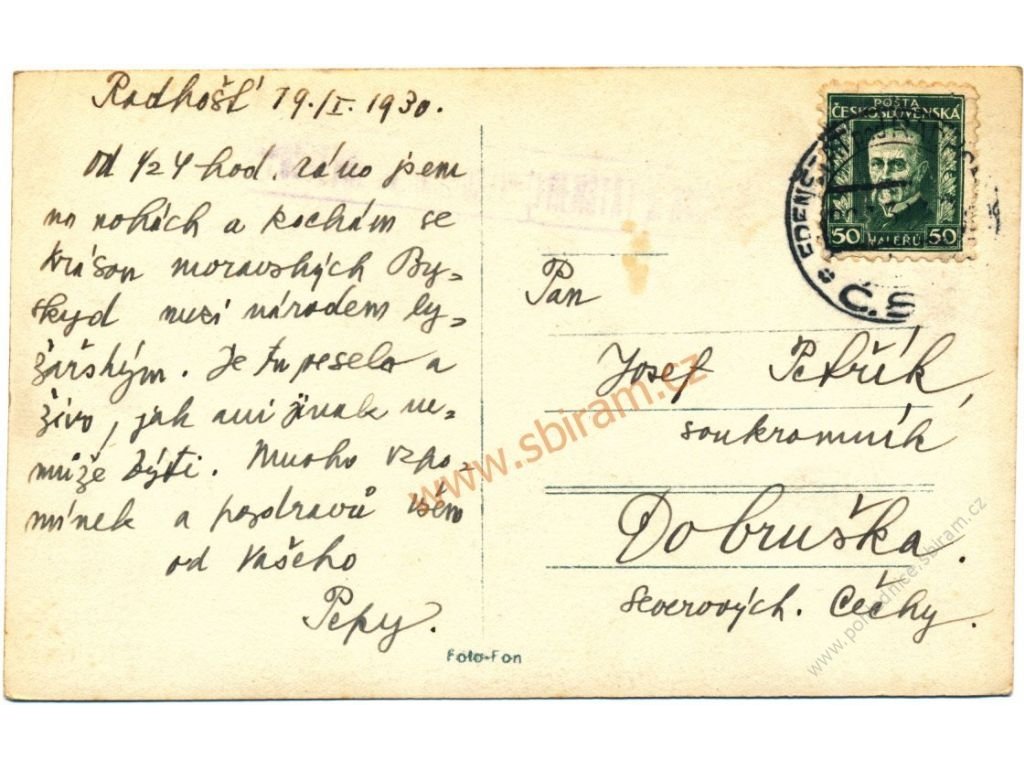 Radhošť 19./I. 1930.
Od 1/2 4 hod. ráno jsem
na nohách a kochám se
krásou moravských By-
skyd mezi národem ly-
žařským. Je tu veselo a
živo, jak ani jinak ne-
může býti. Mnoho vzpo-
mínek a pozdravů Všem
od Vašeho
Pepy.
POŠTA
ČESKOSLOVENSKÁ
50 HALÉŘŮ 50
Č.S
Pan
Josef Petřík,
soukromník
Dobruška.
Severových. Čechy.
Foto-Fon
www.sbiram.cz
www.pohlednice.sbiram.cz